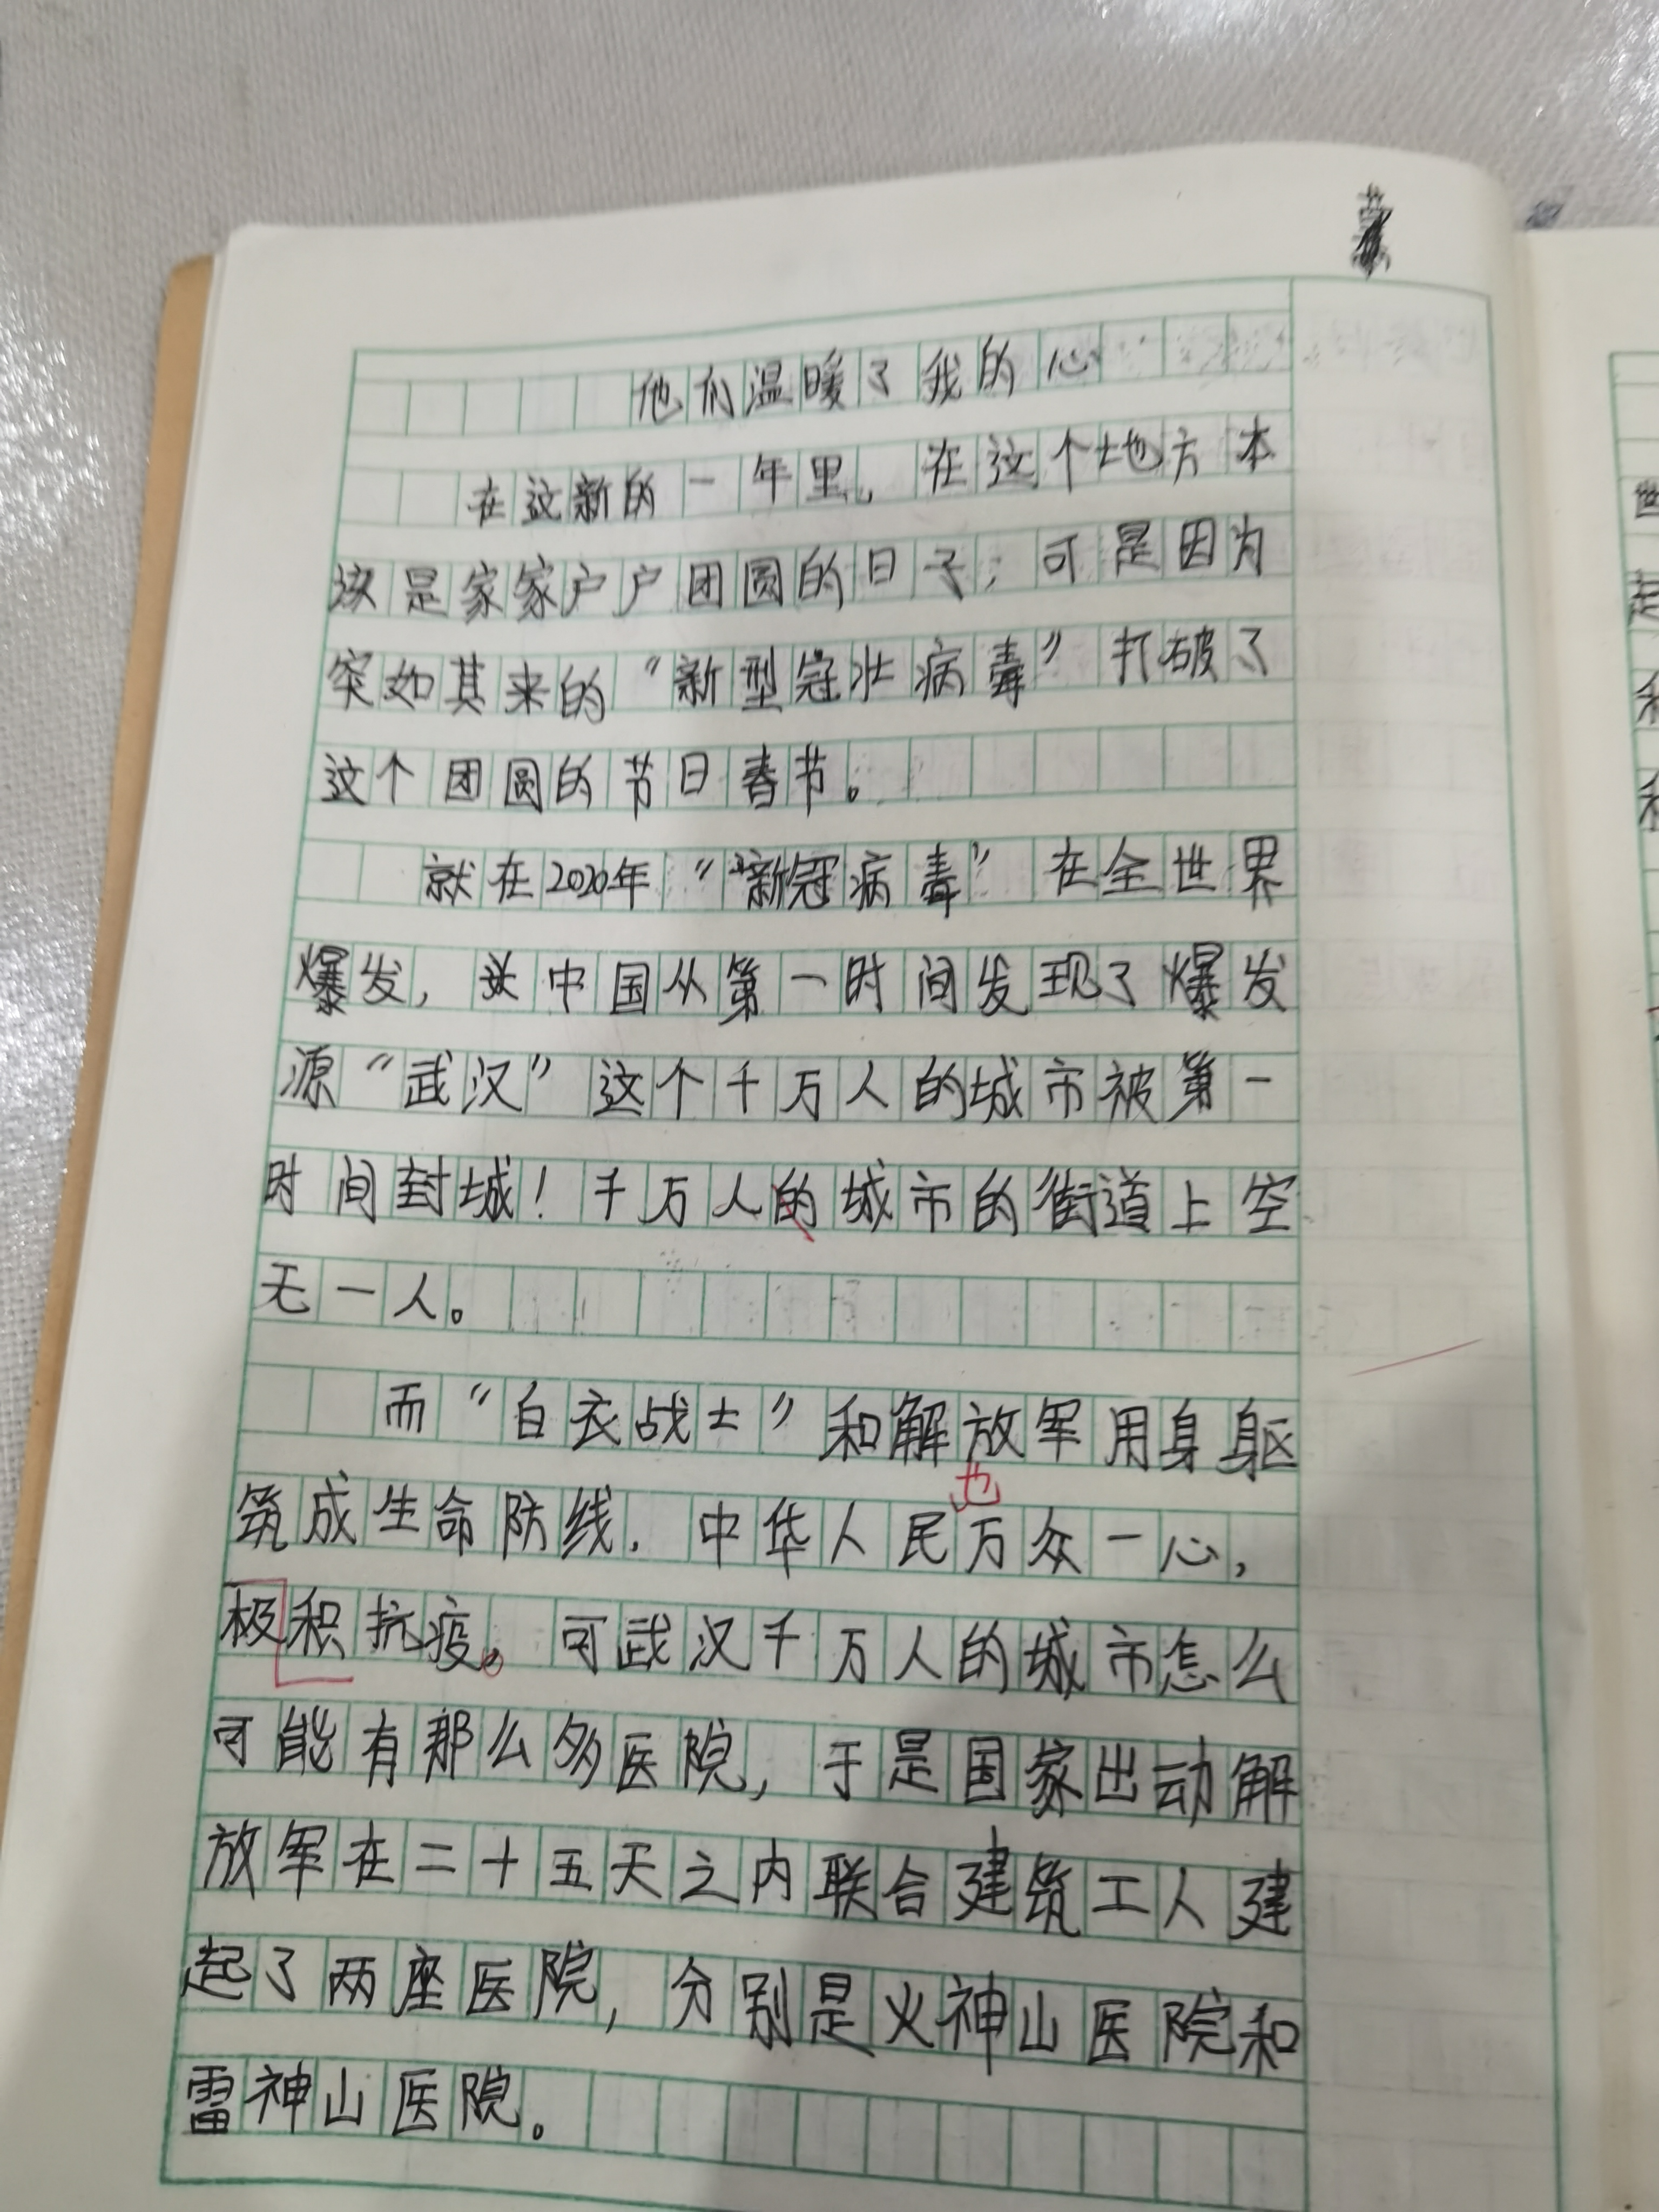 他们温暖了我的心
在这新的一年里，在这个地方本
该是家家户户团圆的日子；可是因为
突如其来的“新型冠壮病毒”打破了
这个团圆的节日春节。
就在2020年“新冠病毒”在全世界
爆发，中国从第一时间发现了爆发
源“武汉”这个千万人的城市被第一
时间封城！千万人的城市的街道上空
无一人。
而“白衣战士”和解放军用身躯
也
筑成生命防线．中华人民万众一心，
极积抗疫。可武汉千万人的城市怎么
可能有那么多医院，于是国家出动解
放军在二十五天之内联合建筑工人建
起了两座医院，分别是火神山医院和
雷神山医院。